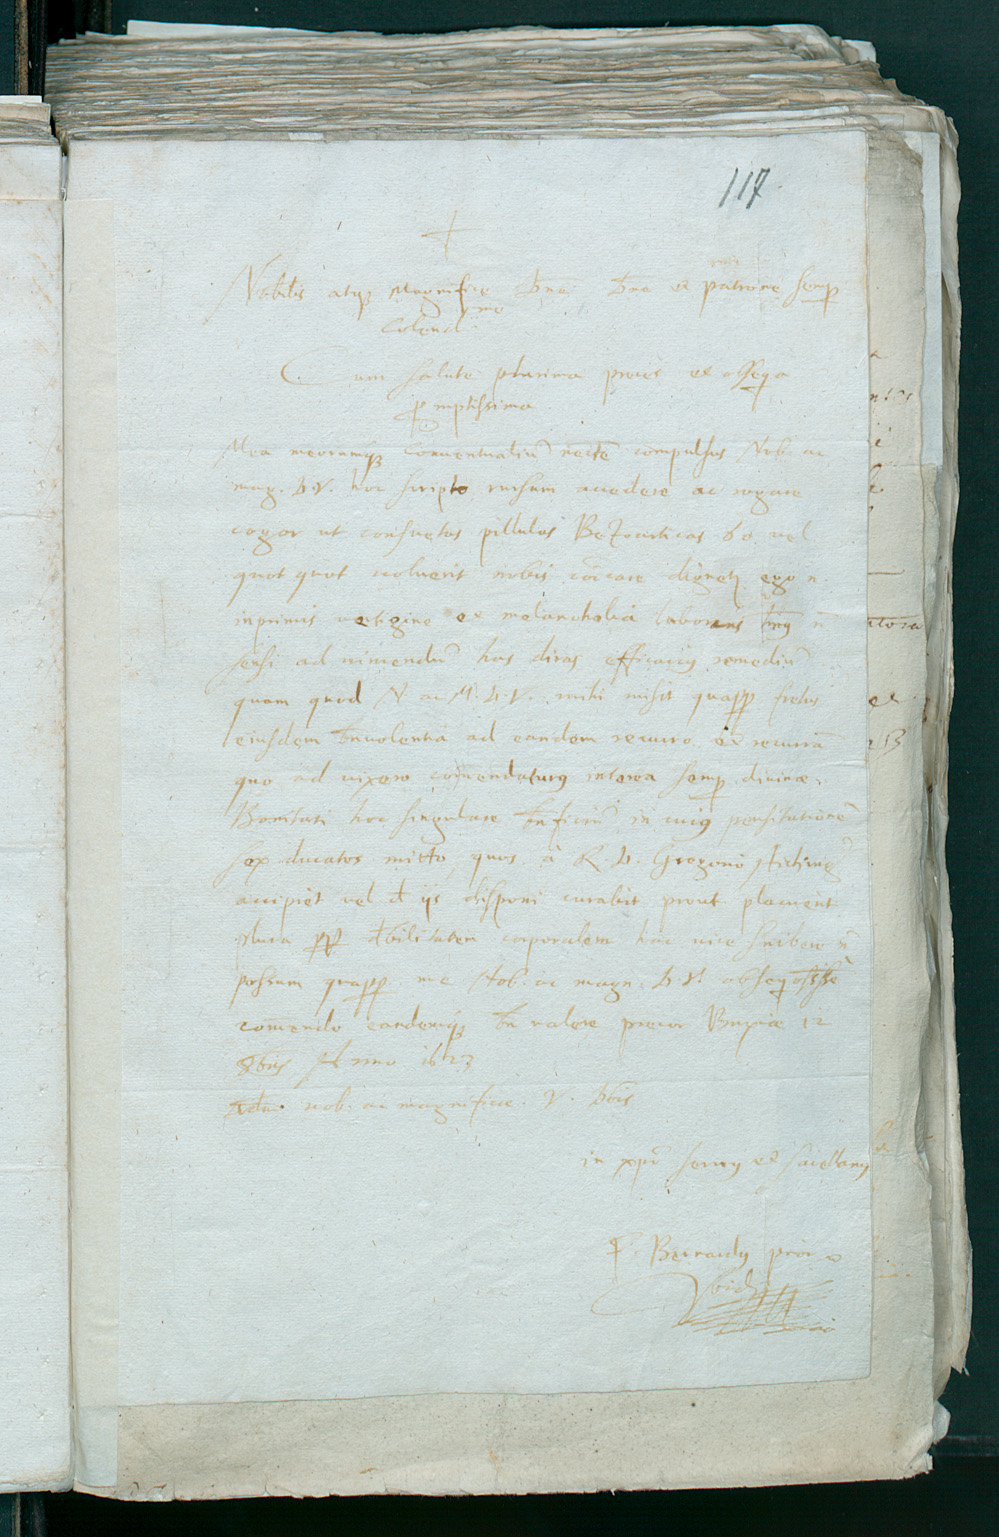 117
+
Nobilis atq Magnifice Dne Dne et patrone semp
colend
Cum salute plurima preces et obseq
promptissima
Mea meorumq conventualiu necte compulsus Nob. ac
mag. D. V. hoc scripto rursum accedere ac rogare
cogor ut consuetas pillulas Bezoarticas 60 vel
quot quot voluerit nobis coicare dignetr ego n.
inprimis vertigine et melancholia laborans
sensi ad vincendu has diras efficacius remediu
quam quod N. ac M. D. V. mihi misit quapp fretus
eiusdem bnvolentia ad eandem recurro et recurra
quo ad vixero comendaturus interea semp divinae
Bonitati hoc singulare bnficiu in cuius pensitatione
sex ducatos mitto quos à R. D. Gregorio
accipiet vel de iis disponi curabit prout placuerit
plura ppr debilitatem corporalem hac vice scribere n
possum quapp me Nob. ac magn. D. V.
comendo eandemq bn valere precor Brunae 12
8bris Anno 1623
nob. ac magnificae V. Dois
in xpo servus et sacellanus
F. Bernardus prior